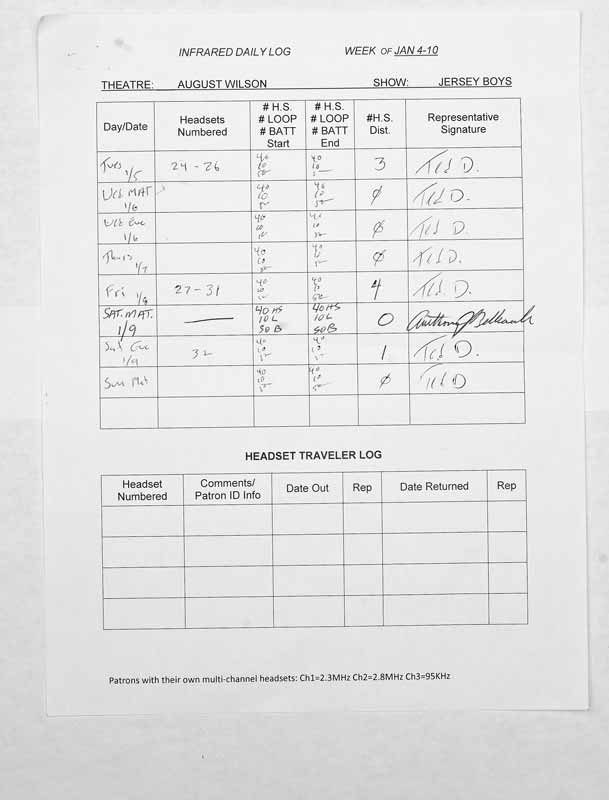 INFRARED DAILY LOG WEEK OF JAN 4-10
THEATRE: AUGUST WILSON SHOW: JERSEY BOYS
Day/Date Headsets Numbered # H.S. # LOOP # BATT Start # H.S. # LOOP # BATT End #H.S. Dist. Representative Signature
Tues 1/5 24-26 40 10 50 40 10 3 Ted D.
Wed MAT 1/6 40 10 50 40 10 50 ∅ Ted D.
Wed Eve 1/6 40 10 50 40 10 50 ∅ Ted D.
Thurs 1/7 40 10 50 40 10 50 ∅ Ted D.
Fri 1/8 27-31 40 10 50 40 10 50 4 Ted D.
SAT. MAT. 1/9 — 40 HS 10 L 50 B 40 HS 10 L 50 B 0 Anthony
Sat Eve 1/9 32 40 10 50 40 10 50 1 Ted D.
Sun Mat 40 10 50 40 10 50 ∅ Ted D
HEADSET TRAVELER LOG
Headset Numbered Comments/ Patron ID Info Date Out Rep Date Returned Rep
Patrons with their own multi-channel headsets: Ch1=2.3MHz Ch2=2.8MHz Ch3=95KHz